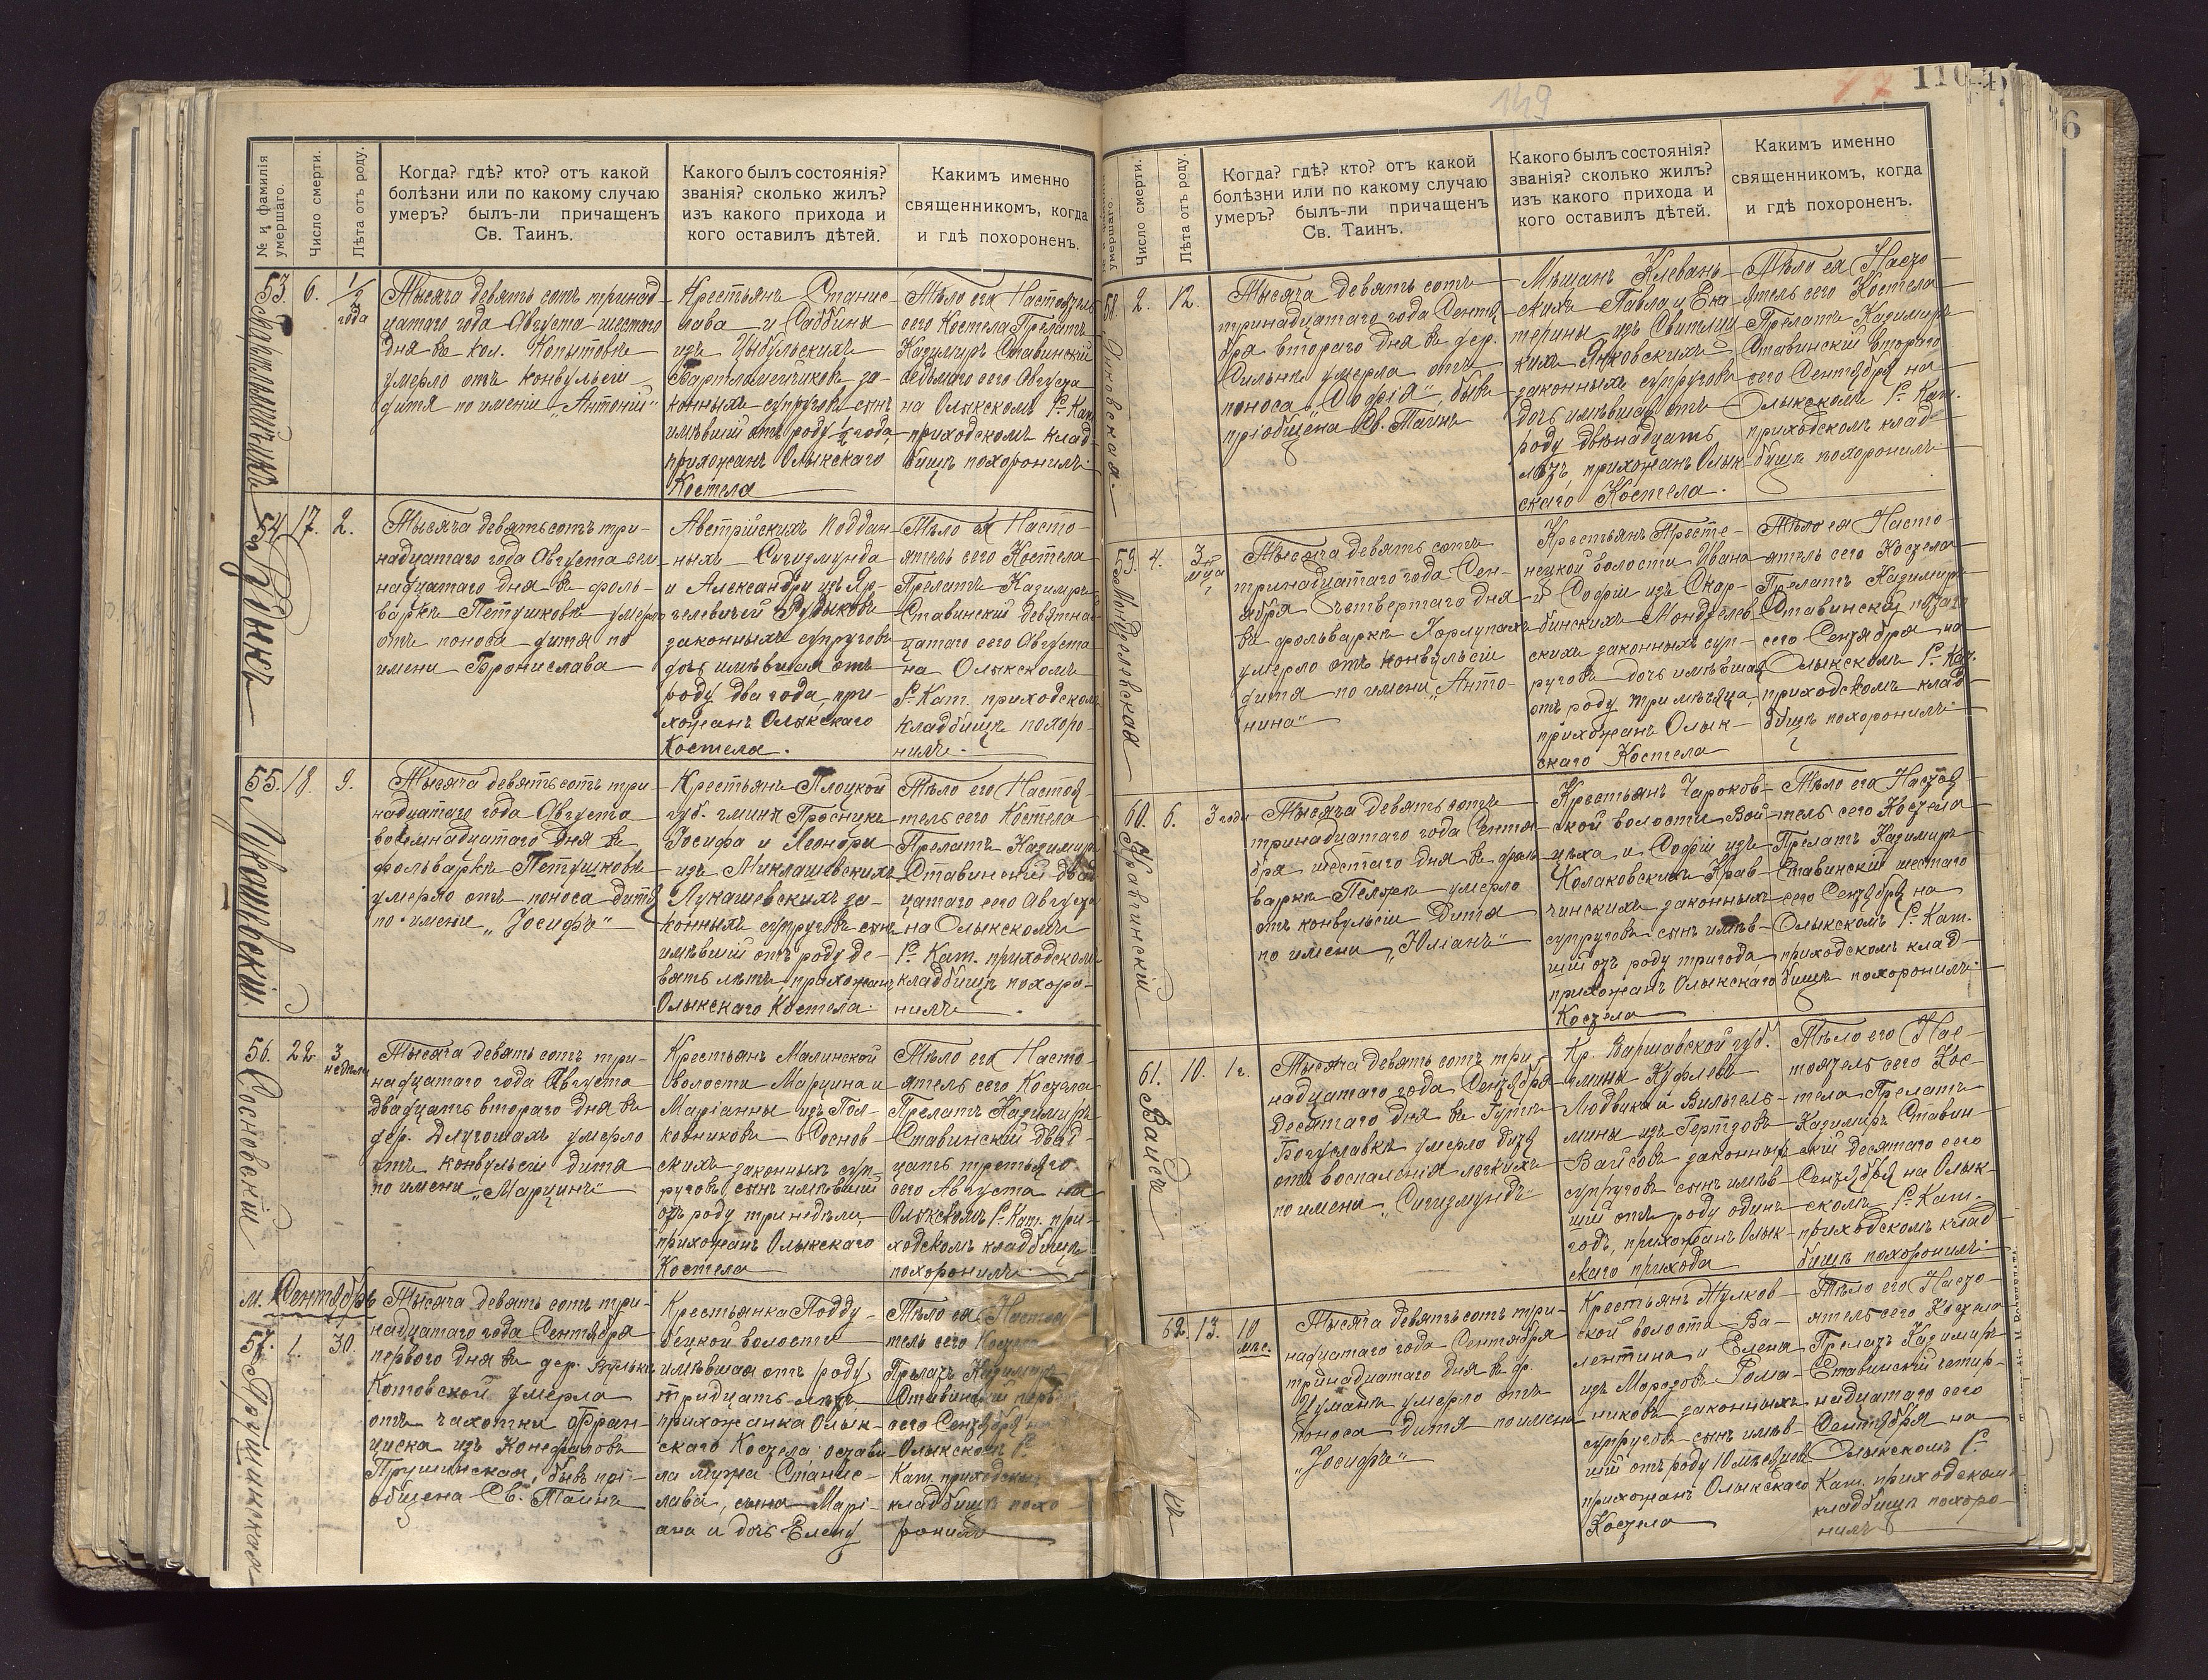 № и фамилія умершаго.
Число смерти.
Лѣта отъ роду.
Когда? гдѣ? кто? отъ какой
болѣзни или по какому случаю
умеръ? былъ-ли причащенъ
Св. Таинъ.
Какого былъ состоянія?
званія? сколько жилъ?
изъ какого прихода и
кого оставилъ дѣтей.
Какимъ именно
священникомъ, когда
и гдѣ похороненъ.
53.
6.
1/2
года
Тысяча девять сотъ принад
цатаго года Августа шестого
дня въ кол. Копытовкѣ
умерло отъ конвульсіи
дитя по имени „Антоній"
Крестьянъ Станис-
лава и Саббины
изъ Цыбульскихъ
Бартломейчиковъ за-
конныхъ супруговъ сынъ
имѣвшій отъ роду 1/2 года,
прихожанъ Олыкскаго
Костела
Тѣло его Настоятель
сего Костела Прелатъ
Казимиръ Ставинскій
седьмого сего Августа
на Олыкскомъ Р.-Кат.
приходскомъ клад-
бищѣ похоронилъ.
54.
17.
2.
Тысяча девятьсотъ три-
надцатаго года Августа сем-
надцатаго дня въ фоль-
варкѣ Петушковѣ умерло
отъ поноса дитя по
имени Бронислава
Австрійскихъ поддан-
ныхъ Сигизмунда
и Александры изъ
законныхъ супруговъ
дочь имѣвшая отъ
роду два года, при-
хожанъ Олыкскаго
Костела.
Тѣло ея Насто-
ятель сего Костела
Прелатъ Казимиръ
Ставинскій девятнад-
цатаго сего Августа
на Олыкскомъ
Р.-Кат. приходскомъ
кладбищѣ похоро-
нилъ.
55.
18.
9.
Лукашевскій
Тысяча девятьсотъ три-
надцатаго года Августа
восемнадцатаго дня въ
фольваркѣ Петушковѣ
умерло отъ поноса дитя
по имени „Іосифъ"
Крестьянъ Плоцкой
губ. гмины
Іосифа и Леоноры
изъ Миклашевскихъ
Лукашевскихъ за-
конныхъ супруговъ сынъ
имѣвшій отъ роду де-
вять лѣтъ прихожанъ
Олыкскаго Костела.
Тѣло его Настоя-
тель сего Костела
Прелатъ Казимиръ
Ставинскій двад-
цатаго сего Августа
на Олыкскомъ
Р.-Кат. приходскомъ
кладбищѣ похоро-
нилъ.
56.
22
3
недѣли
Сосновскій
Тысяча девять сотъ три-
надцатаго года Августа
двадцать втораго дня въ
дер. Длугошахъ умерло
отъ конвульсіи дитя
по имени „Марцинъ"
Крестьянъ Малинской
волости Марцина и
Маріанны изъ Пол-
ковниковъ Соснов-
скихъ законныхъ суп-
руговъ сынъ имѣвшій
отъ роду три недѣли,
прихожанъ Олыкскаго
Костела
Тѣло его Насто-
ятель сего Костела
Прелатъ Казимиръ
Ставинскій двад-
цать третьяго
сего Августа на
Олыкскомъ Р.-Кат. при-
ходскомъ кладбищѣ
похоронилъ.
м. Сентябрь
57.
1.
30.
Тысяча девять сотъ три-
надцатаго года Сентября
перваго дня въ дер. Вулькѣ
Котовской умерла
отъ чахотки Фран-
циска изъ Конефаловъ
бывъ прі-
общена Св. Таинъ
Крестьянка Подду-
бецкой волости
имѣвшая отъ роду
тридцать лѣтъ,
прихожанка Олык-
скаго Костела остави-
ла мужа Станис-
лава, сына Марі-
ана и дочь Елену
Тѣло ея Настоя-
тель сего Костела
Прелатъ Казимиръ
Ставинскій перв.
сего Сентября на
Олыкскомъ Р.-
Кат. приходскомъ
кладбищѣ похо-
ронилъ
149
77
110
6
умершаго.
Число смерти.
Лѣта отъ роду.
Когда? гдѣ? кто? отъ какой
болѣзни или по какому случаю
умеръ? былъ-ли причащенъ
Св. Таинъ.
Какого былъ состоянія?
званія? сколько жилъ?
изъ какого прихода и
кого оставилъ дѣтей.
Какимъ именно
священникомъ, когда
и гдѣ похороненъ.
58.
2.
12.
Янковская.
Тысяча девять сотъ
тринадцатаго года Сентя-
бря втораго дня въ дер.
Сильнѣ умерла отъ
поноса „Софія", бывъ
пріобщена Св. Таинъ
Мѣщанъ Клевань-
скихъ Павла и Ека-
терины изъ
Янковскихъ
законныхъ супруговъ
дочь имѣвшая отъ
роду двѣнадцать
лѣтъ, прихожанъ Олык-
скаго Костела.
Тѣло ея Насто-
ятель сего Костела
Прелатъ Казимиръ
Ставинскій втораго
сего Сентября на
Олыкскомъ Р.-Кат.
приходскомъ клад-
бищѣ похоронилъ
59.
4.
3
м-ца
Мондзелевская
Тысяча девять сотъ
тринадцатаго года Сен-
тября четвертаго дня
въ фольваркѣ Хорлупахъ
умерло отъ конвульсіи
дитя по имени „Анто-
нина"
Крестьянъ Тросте-
нецкой волости Ивана
и Софіи изъ Скар-
бинскихъ Мондзелев-
скихъ законныхъ суп-
руговъ дочь имѣвшая
отъ роду три мѣсяца,
прихожанъ Олык-
скаго Костела
Тѣло ея Насто-
ятель сего Костела
Прелатъ Казимиръ
Ставинскій пятаго
сего Сентября на
Олыкскомъ Р.-Кат.
приходскомъ клад-
бищѣ похоронилъ.
60.
6.
3 года
Кравчинскій
Тысяча девятьсотъ
тринадцатаго года Сентя-
бря шестаго дня въ фоль-
варкѣ умерло
отъ конвульсіи дитя
по имени „Юліанъ"
Крестьянъ Чаруков-
ской волости Вой-
цѣха и Софіи изъ
Колаковскихъ Крав-
чинскихъ законныхъ
супруговъ сынъ имѣв-
шій отъ роду три года
прихожанъ Олыкскаго
Костела
Тѣло его Настоя-
тель сего Костела
Прелатъ Казимиръ
Ставинскій шестаго
сего Сентября на
Олыкскомъ Р.-Кат.
приходскомъ клад-
бищѣ похоронилъ.
61.
10.
1 г.
Вайсъ
Тысяча девять сотъ три-
надцатаго года Сентября
десятаго дня въ Гуткѣ
Богуславкѣ умерло дитя
отъ воспаленія легкихъ
по имени „Сигизмундъ"
Кр. Варшавской губ.
гмины Куфлевъ
Людвика и Вильгель-
мины изъ Гертзовъ
Вайсовъ законныхъ
супруговъ сынъ имѣв-
шій отъ роду одинъ
годъ, прихожанъ Олык-
скаго прихода
Тѣло его Нас-
тоятель сего Кос-
тела Прелатъ
Казимиръ Ставин-
скій десятаго сего
Сентября на Олык-
скомъ Р.-Кат.
приходскомъ клад-
бищѣ похоронилъ.
62.
13.
10
мѣс.
Тысяча девятьсотъ три-
надцатаго года Сентября
тринадцатаго дня въ д.
Цумань умерло отъ
поноса дитя по имени
„Іосифъ"
Крестьянъ
волости Ва-
лентина и Елена
изъ Морозовъ Рома-
никовъ законныхъ
супруговъ сынъ имѣв-
шій отъ роду 10 мѣсяцевъ
прихожанъ Олыкскаго
Костела
Тѣло его Насто-
ятель сего Костела
Прелатъ Казимиръ
Ставинскій четыр-
надцатаго сего
Сентября на
Олыкскомъ Р.-
Кат. приходскомъ
кладбищѣ похоро-
нилъ